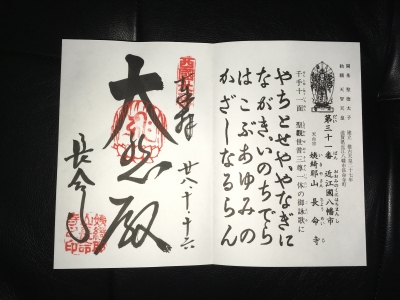 開基 聖徳太子
勅願 天智天皇
第三十一番 近江國八幡市
天台宗 姨綺耶山 長命寺
千手十一面 聖觀世音三尊一体の御詠歌に
やちとせや、やなぎに
ながき、いのちでら
はこぶあゆみの
かざしなるらん
奉拝
廿八・十・十六
大悲殿
長命寺